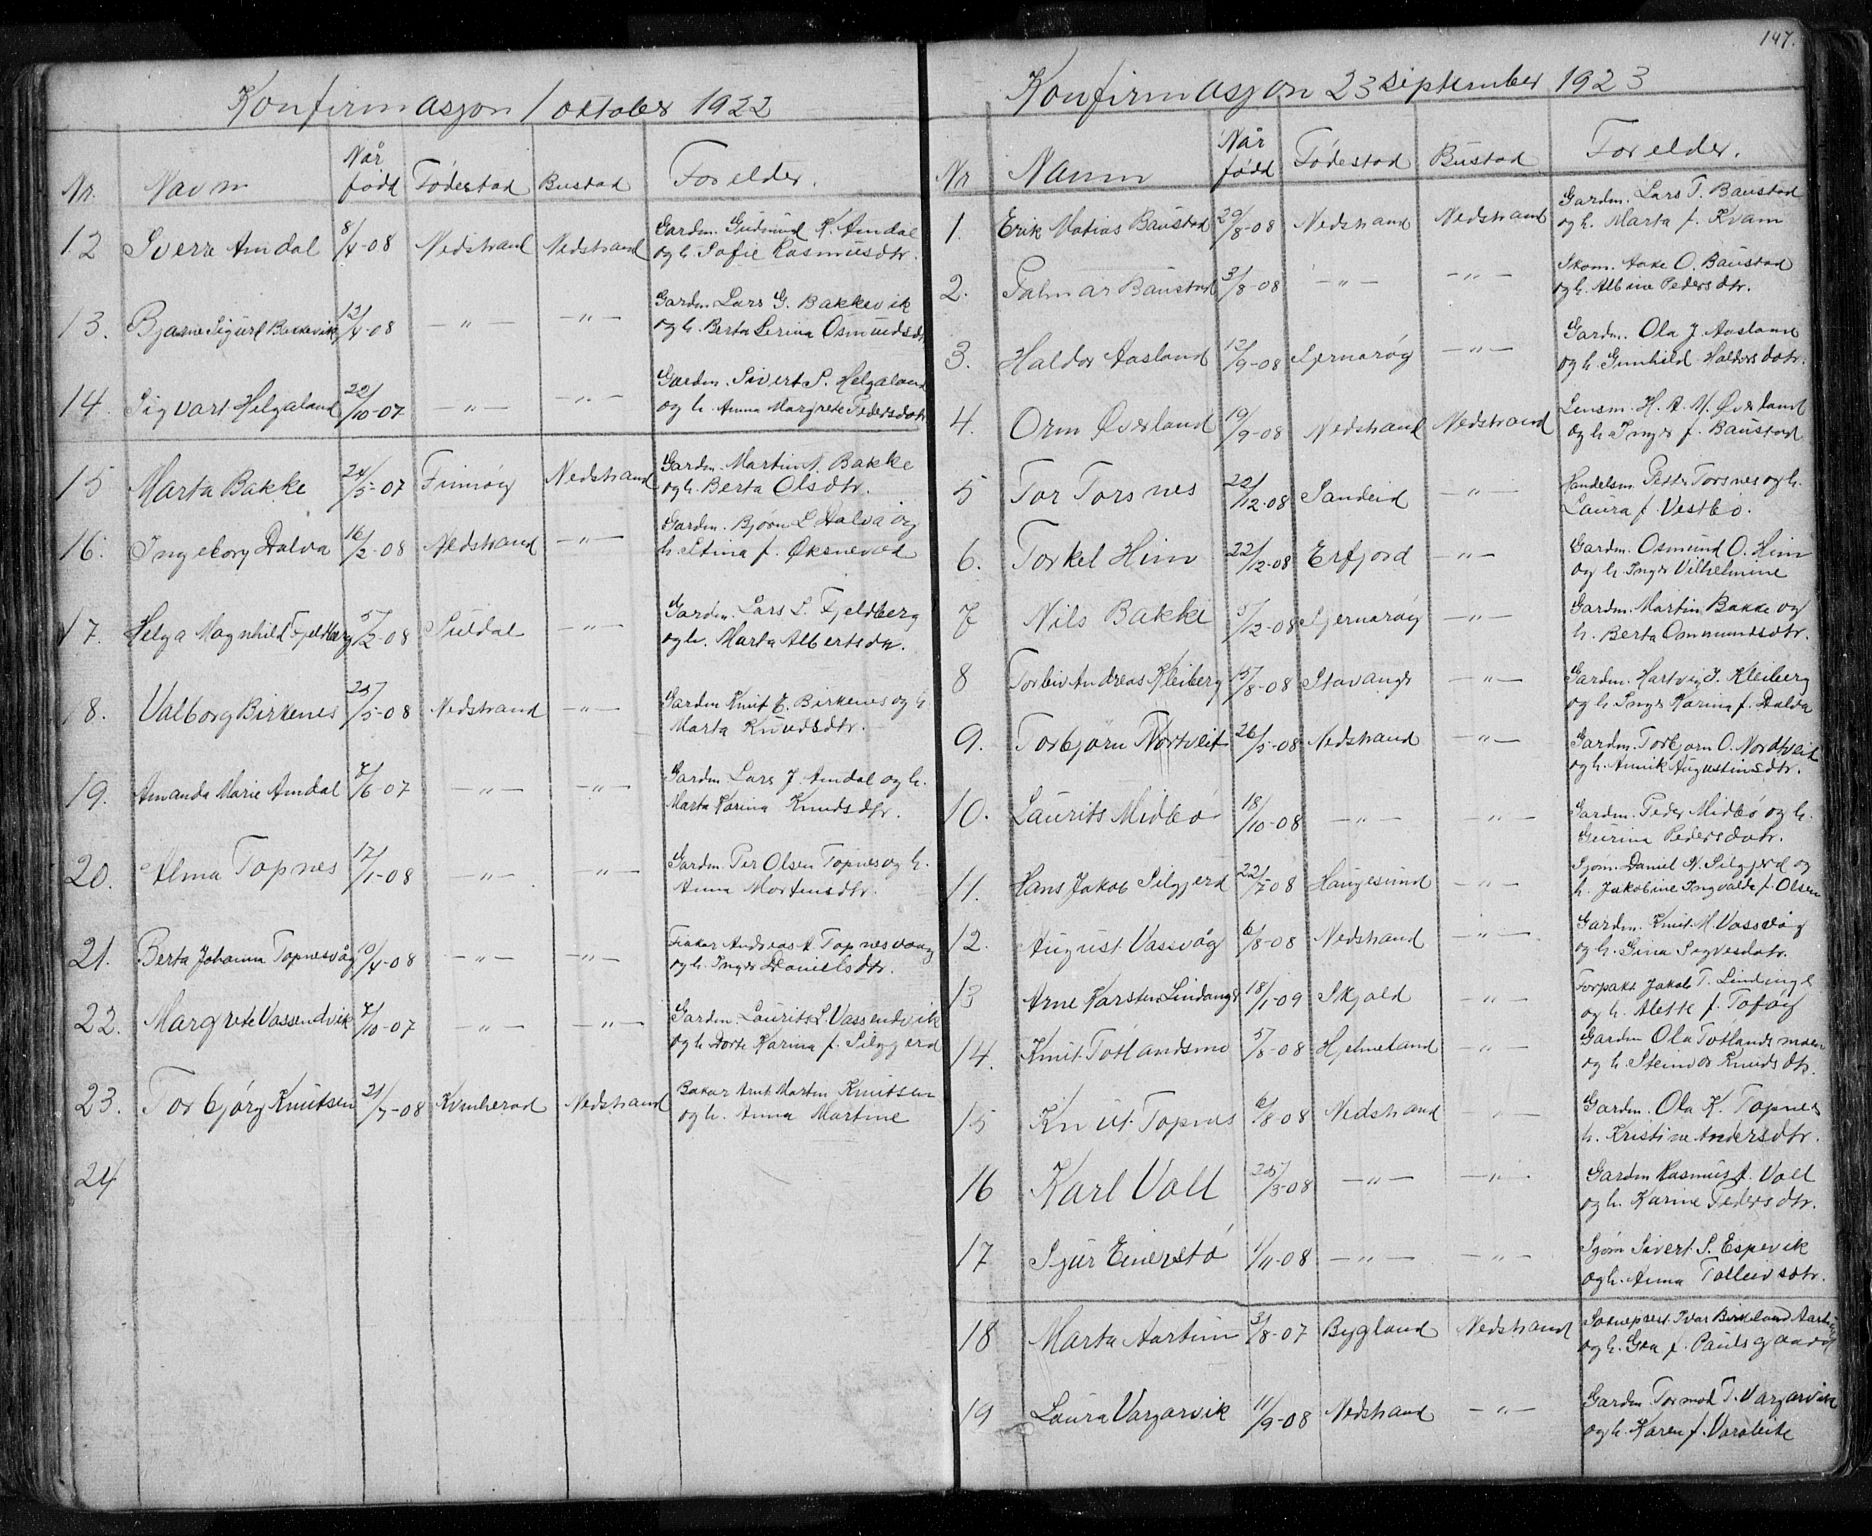 147.
Konfirmasjon 1 oktober 1922
Nr. Navn Når født Fødestad Bustad Forelder.
12 Sverre Amdal 8/4-08 Nedstrand Nedstrand Gardm. Gudmund K. Amdal
og h. Sofie Rasmusdtr.
13. Bjarne Sigurd Bakkevik 13/4-08 —"— —"— Gardm. Lars G. Bakkevik
og h. Berta Serina Osmundsdtr
14. Sigvart Helgaland 22/10-07 —"— —"— Gardm. Sivert S. Helgaland
og h. Anna Margrete Pedersdotr
15 Marta Bakke 24/5-07 Finnøy Nedstrand Gardm. Martin N. Bakke
og h. Berta Olsdtr.
16. Ingeborg Dalva 16/2-08 Nedstrand —"— Gardm. Bjørn L Dalva og
h. Stina f. Øksnevad
17. Helga Magnhild Fjeldberg 5/2-08 Suldal —"— Gardm. Lars L. Fjeldberg
og h. Marta Albertsdtr.
18. Valborg Birkenes 25/5-08 Nedstrand —"— Gardm Knut E. Birkenes og h
Marta Knudsdtr.
19. Amanda Marie Amdal 7/6-07 —"— —"— Gardm Lars J. Amdal og h.
Marta Karina Knudsdtr.
20. Alma Topnes 17/1-08 —"— —"— Gardm. Per Olsen Topnes og h.
Anna Mortensdtr.
21. Berta Johanna Topnesvåg 10/4-08 —"— —"— Fisker Andreas A Topnesvaag
og h. Inger Danielsdtr.
22. Margrete Vassendvik 7/10-07 —"— —"— Gardm. Laurits L. Vassendvik
og h Dorte Karina f. Silgjerd
23. Torbjørg Knutsen 21/7-08 Kvinherad Nedstrand Bakar Arnt Martin Knutsen
og h. Anna Martine
24
Konfirmasjon 23 september 1923
Nr Namn Når født Fødestad Bustad Forelder.
1. Erik Matias Baustad 20/8-08 Nedstrand Nedstrand Gardm. Lars T. Baustad
og h. Marta f. Kvam
2. Salmar Baustad 3/8-08 —"— —"— Skom. Aake O. Baustad
og h. Albine Pedersdtr.
3. Haldor Aasland 12/9-08 Sjernarøy —"— Gardm. Ola J Aasland
og h. Gunhild Haldorsdotr.
4. Orm Øverland 19/9-08 Nedstrand Nedstrand Lensm. H. R. M. Øverland
og h Inger f. Baustad
5 Tor Torsnes 22/12-08 Sandeid —"— Handelsm Petter Torsnes og h.
Laura f. Vestbø.
6. Torkel Him 22/12-08 Erfjord —"— Gardm. Osmund O. Him
og h. Inger Vilhelmine
7 Nils Bakke 5/12-08 Sjernarøy —"— Gardm. Martin Bakke og
h. Berta Ommundsdtr.
8 Torleiv Andreas Kleiberg 15/8-08 Stavanger —"— Gardm. Hartvig J. Kleiberg
og h Inger Karina f. Dalva
9. Torbjørn Nortveit 26/5-08 Nedstrand —"— Gardm. Torbjørn O. Nordtveit
og h. Annik Augustinsdtr.
10. Laurits Midbø 18/10-08 —"— —"— Gardm. Peder Midbø og h.
Gurina Pedersdotr.
11. Hans Jakob Silgjerd 22/5-08 Haugesund —"— Sjøm. Daniel N. Silgjerd og
h. Jakobine Ingvalda f. Olsen
12. August Vassvåg 6/8-08 Nedstrand —"— Gardm. Knut M. Vassvåg
og h. Gina Sigvesdotr.
13 Arne Karsten Lindanger 18/1-09 Skjold —"— Forpakt Jakob T. Lindanger
og h. Alette f.
14. Knut Totlandsmo 5/8-08 Hjelmeland —"— Gardm Ola Totlandsmoen
og h. Steinvor Knudsdtr.
15 Knut Topnes 6/8-08 Nedstrand —"— Gardm. Ola K. Topnes
h. Kristine Andersdtr.
16 Karl Voll 25/3-08 —"— —"— Gardm Rasmus A. Voll
og h. Karine Pedersdtr.
17 Sjur Einerstø 1/11-08 —"— —"— Sjøm Sivert S. Espevik
og h. Anna Tolleivsdtr.
18 Marta Aartun 3/8-07 Bygland Nedstrand Sokneprest Ivar Birkeland Aartun
og h. Gea f. Paulsgaard
19 Laura Vargarvik 11/9-08 Nedstrand —"— Gardm Tormod T. Vargarvik
og h. Karen f. Varaleite